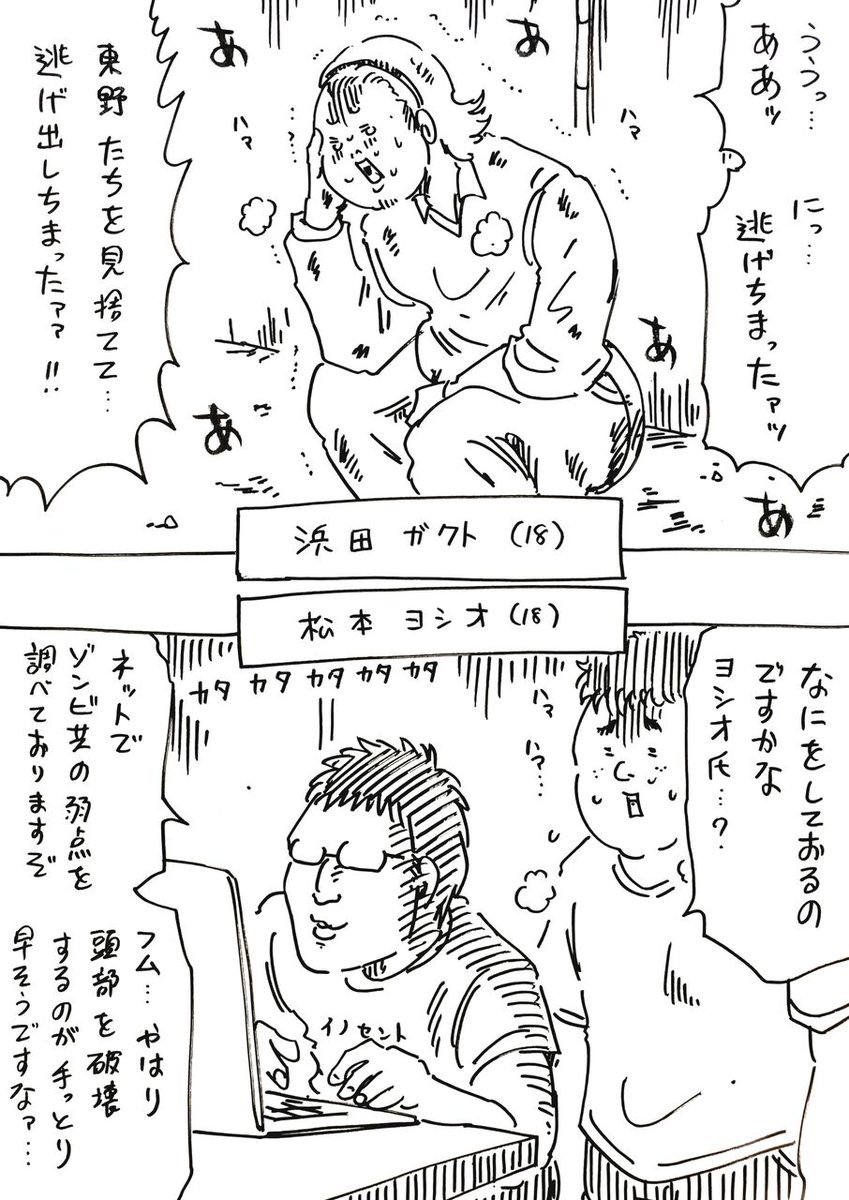 ううっ…
ああッ
にっ…
逃げちまったァッ
あ
あ
ハァ
ハァ
東野たちを見捨てて…
逃げ出しちまったァァ!!
あ
あ
あ
浜田 ガクト (18)
松本 ヨシオ (18)
なにをしておるの
ですかな
ヨシオ氏…?
ハァ
ハァ…
カタ カタ カタ カタ カタ
ネットで
ゾンビ共の弱点を
調べておりますぞ
イノセント
フム… やはり
頭部を破壊
するのが手っとり
早そうですなァ…